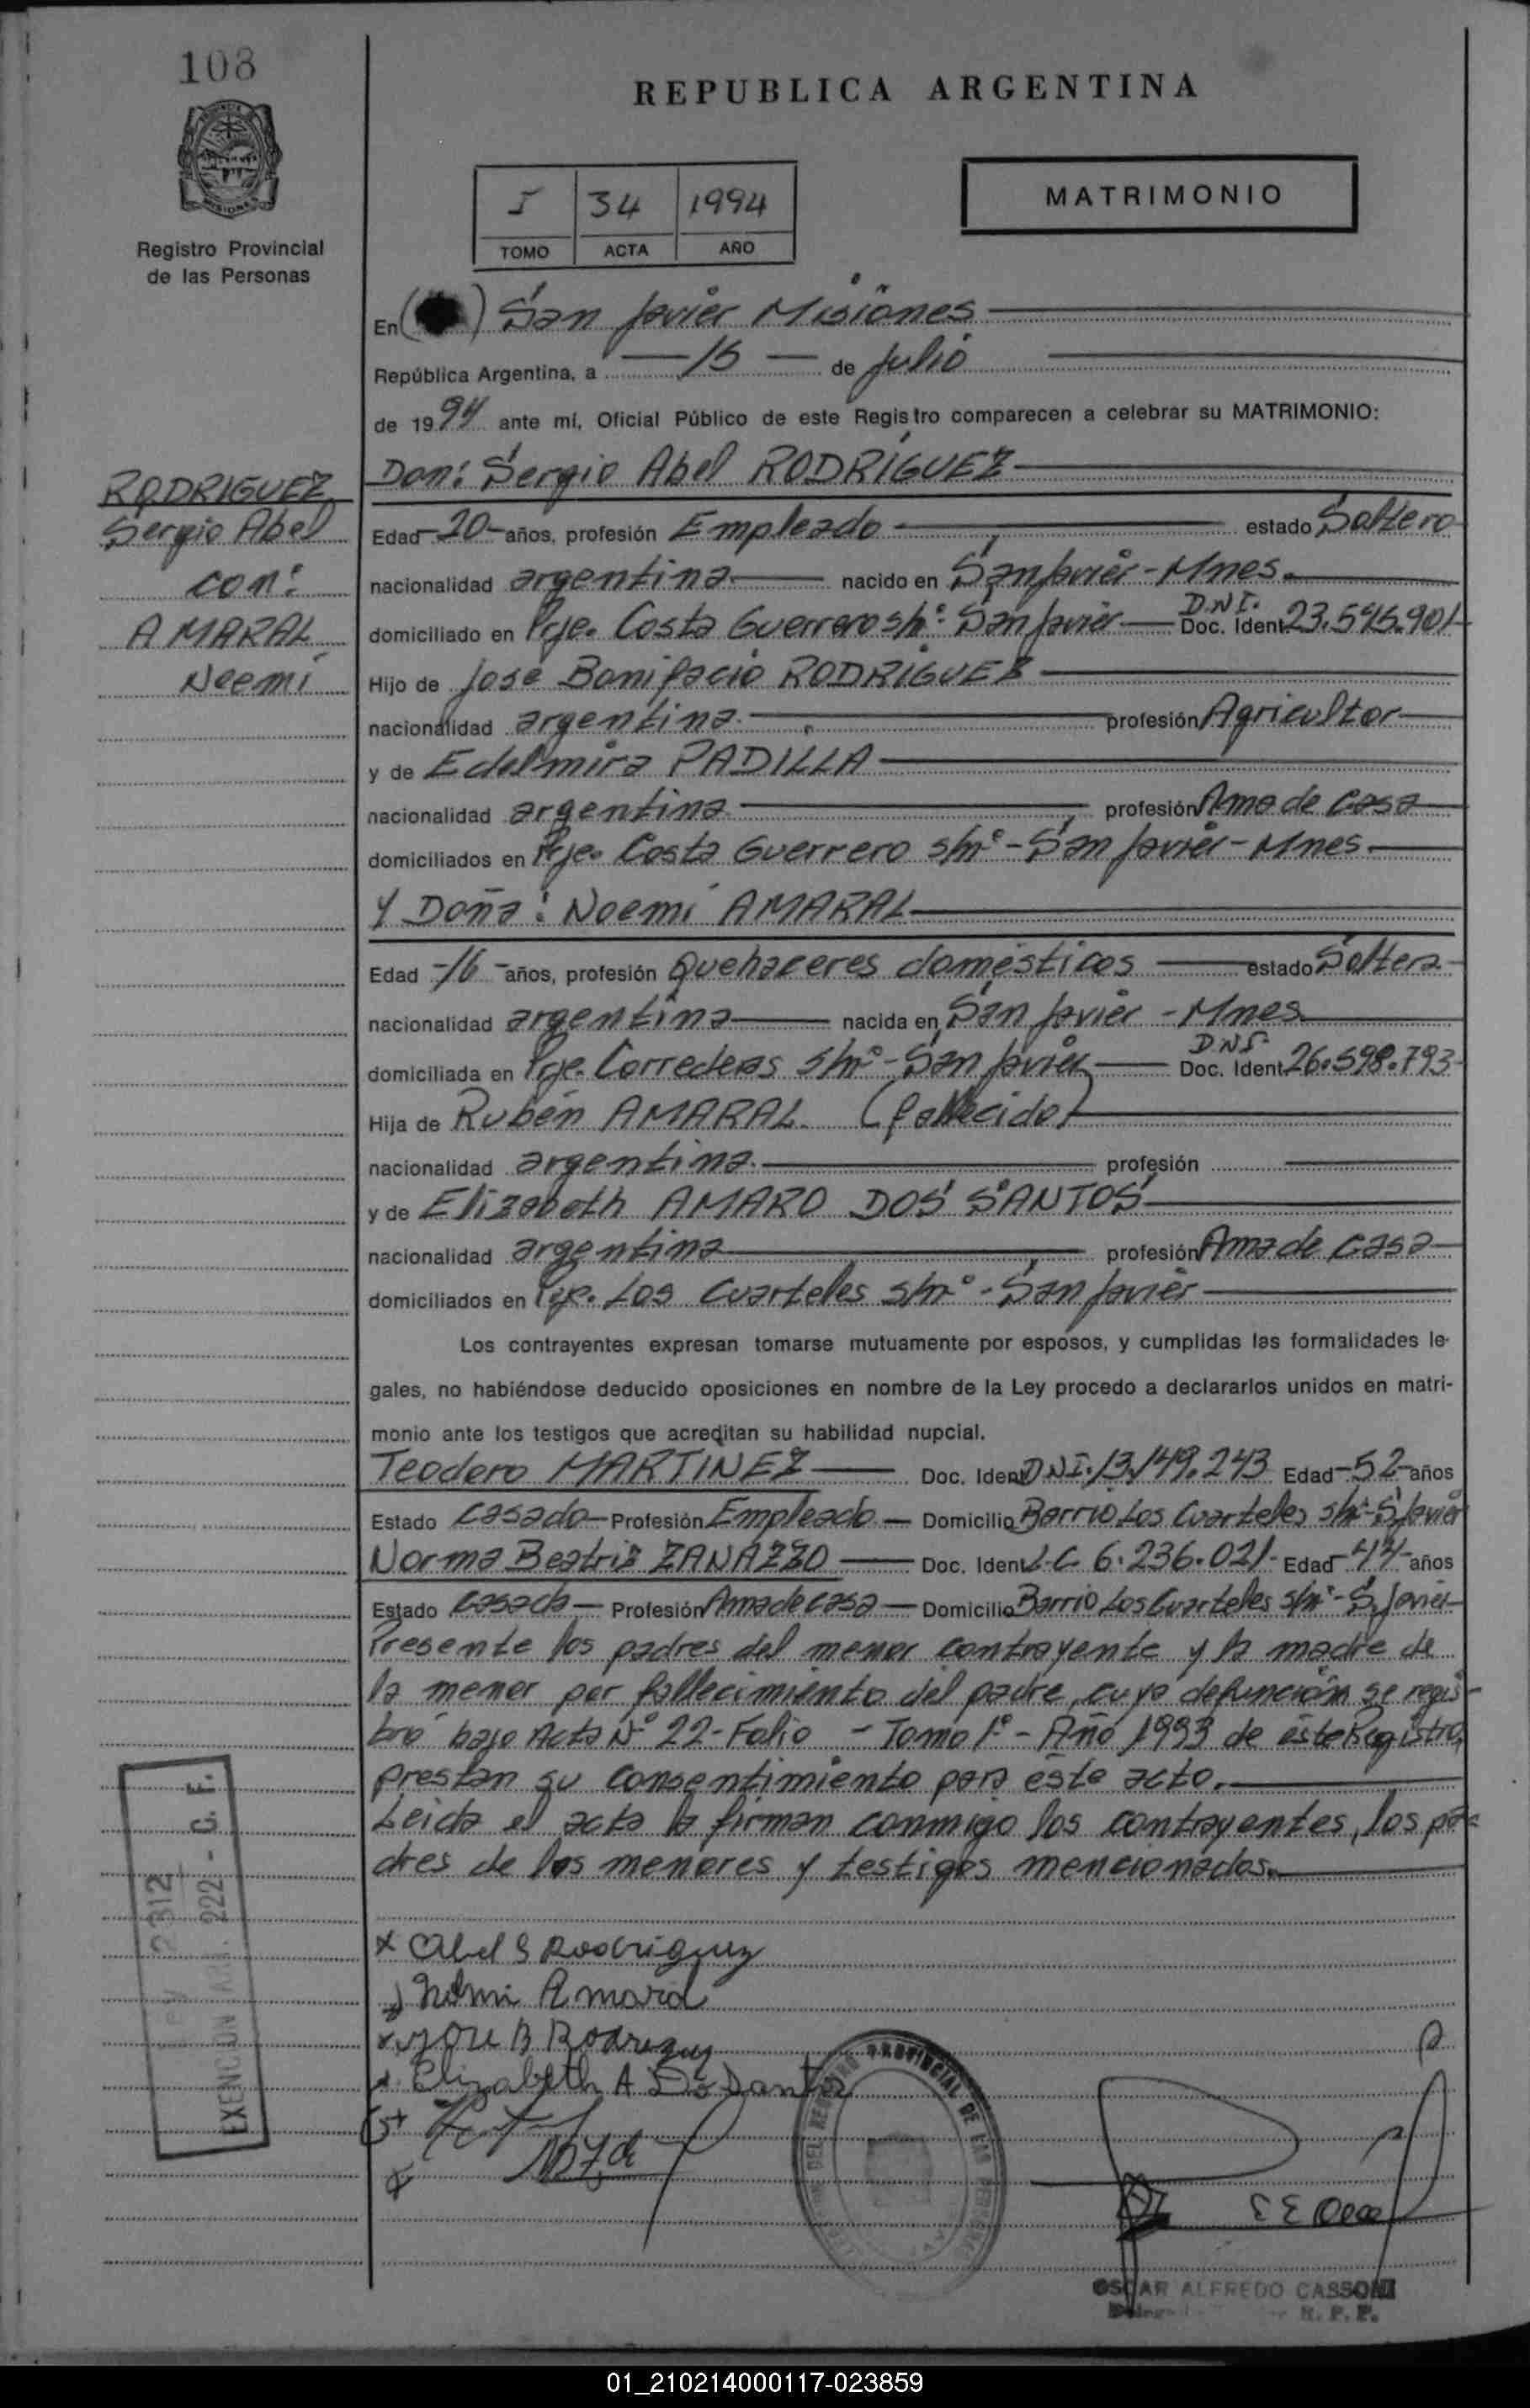 108
REPUBLICA ARGENTINA
I 34 1994
TOMO ACTA AÑO
MATRIMONIO
Registro Provincial
de las Personas
En San Javier Misiones
República Argentina, a 15 de Julio
de 1994 ante mí, Oficial Público de este Registro comparecen a celebrar su MATRIMONIO:
RODRIGUEZ
Sergio Abel
con:
AMARAL
Noemí
Don: Sergio Abel RODRÍGUEZ
Edad 20 años, profesión Empleado estado Soltero
nacionalidad argentina nacido en San Javier - Mnes.
domiciliado en Pje. Costa Guerrero s/nº San Javier D.N.I. Doc. Ident. 23.545.901
Hijo de José Bonifacio RODRÍGUEZ
nacionalidad argentina profesión Agricultor
y de Edelmira PADILLA
nacionalidad argentina profesión Ama de casa
domiciliados en Pje. Costa Guerrero s/nº - San Javier - Mnes.
Y Doña: Noemí AMARAL
Edad 16 años, profesión Quehaceres domésticos estado Soltera
nacionalidad argentina nacida en San Javier - Mnes
domiciliada en Pje. Correderas s/nº - San Javier D.N.I. Doc. Ident. 26.598.793
Hija de Rubén AMARAL (fallecido)
nacionalidad argentina. profesión
y de Elizabeth AMARO DOS SANTOS
nacionalidad argentina profesión Ama de casa
domiciliados en Pje. Los Cuarteles s/nº - San Javier
Los contrayentes expresan tomarse mutuamente por esposos, y cumplidas las formalidades le-
gales, no habiéndose deducido oposiciones en nombre de la Ley procedo a declararlos unidos en matri-
monio ante los testigos que acreditan su habilidad nupcial.
Teodoro MARTINEZ Doc. Ident. DNI. 13.149.243 Edad 52 años
Estado Casado Profesión Empleado Domicilio Barrio Los Cuarteles s/nº - S. Javier
Norma Beatriz ZANAZZO Doc. Ident. L.C. 6.236.021 Edad 44 años
Estado Casada Profesión Ama de casa Domicilio Barrio Los Cuarteles s/nº - S. Javier
Presente los padres del menor contrayente y la madre de
la menor por fallecimiento del padre, cuya defunción se regis-
tró bajo Acta Nº 22 - Folio - Tomo 1º - Año 1993 de éste Registro,
prestan su consentimiento para este acto.
Leida el acta la firman conmigo los contrayentes, los pa-
dres de los menores y testigos mencionados.
LEY 2312
EXENCION ART. 222 - C. F.
x Abel S Rodriguez
Noemi Amaral
x Jose B Rodriguez
x Elizabeth A Dos Santos
OSCAR ALFREDO CASSONI
R. P. P.
01_210214000117-023859